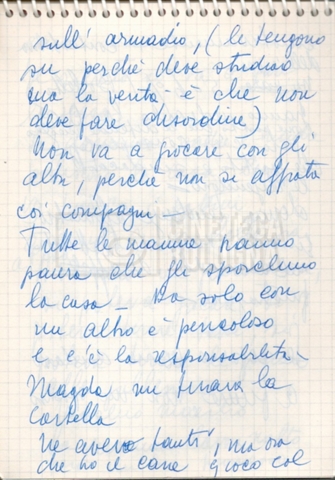 sull' armadio, (le tengono
su perchè deve studiare
ma la verità è che non
deve fare disordine)
Non va a giocare con gli
altri, perchè non si affiata
coi compagni -
Tutte le mamme hanno
paura che gli sporchino
la casa - Da solo con
un altro è pericoloso
e c'è la responsabilità -
Magda mi tirava la
cartella
Ne avevo tanti, ma ora
che ho il cane gioco col